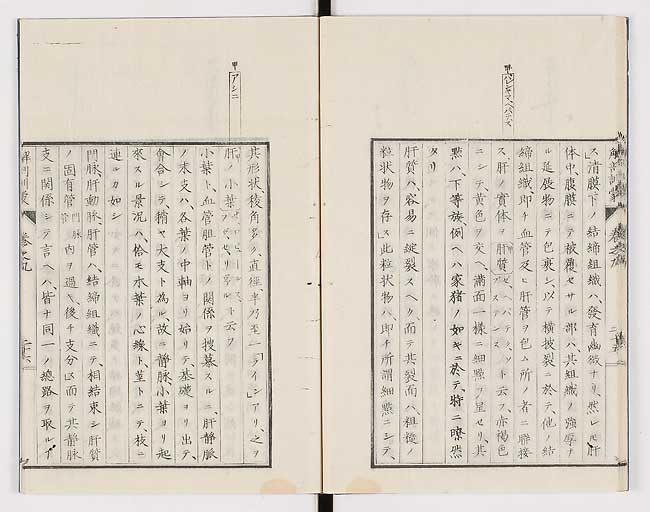 甲
ス漿膜下ノ結締組織ハ、發育幽微ナリ、然レ𪜈肝
体中、腹膜ニテ被覆セサル部ハ、其組織ノ強厚ナ
ル延發物ニテ包裹シ、以テ横披裂ニ於テ、他ノ結
締組織、即チ血管及ヒ肝管ヲ包ム所ノ者ニ聯接
ス、肝ノ實体ヲ肝質ト云フ、赤褐色
ニシテ黄色ヲ交ヘ、満面一様ニ細㸃ヲ呈セリ、其
㸃ハ、下等族例ヘハ家猪ノ如キニ於テ、特ニ瞭然
タリ
肝質ハ、容易ニ綻裂スヘク、而テ其裂面ハ粗糙ノ
粒状物ヲ存ス、此粒状物ハ、即チ所謂細㸃ニシテ、
甲
アシニ
其形状稜角多ク、直徑、半乃至一「リイン」アリ、之ヲ
肝ノ小葉ト云フ
小葉ト、血管胆管トノ關係ヲ捜索スルニ、肝静脈
ノ末支ハ、各葉ノ中軸ヨリ始リテ、基礎ヨリ出テ、
會合シテ稍ヤ大支ト為ル、故ニ静脈、小葉ヨリ起
來スル景况ハ、恰モ木葉ノ心線ト、莖トニテ、枝ニ
連ルカ如シ
門脉、肝動脉、肝管ハ、結締組織ニテ相結束シ、肝質
ノ固有管内ヲ過キ、後チ支分ス、而テ其静脉
支ニ關係シテ言ヘハ、皆ナ同一ノ總路ヲ取ルナ